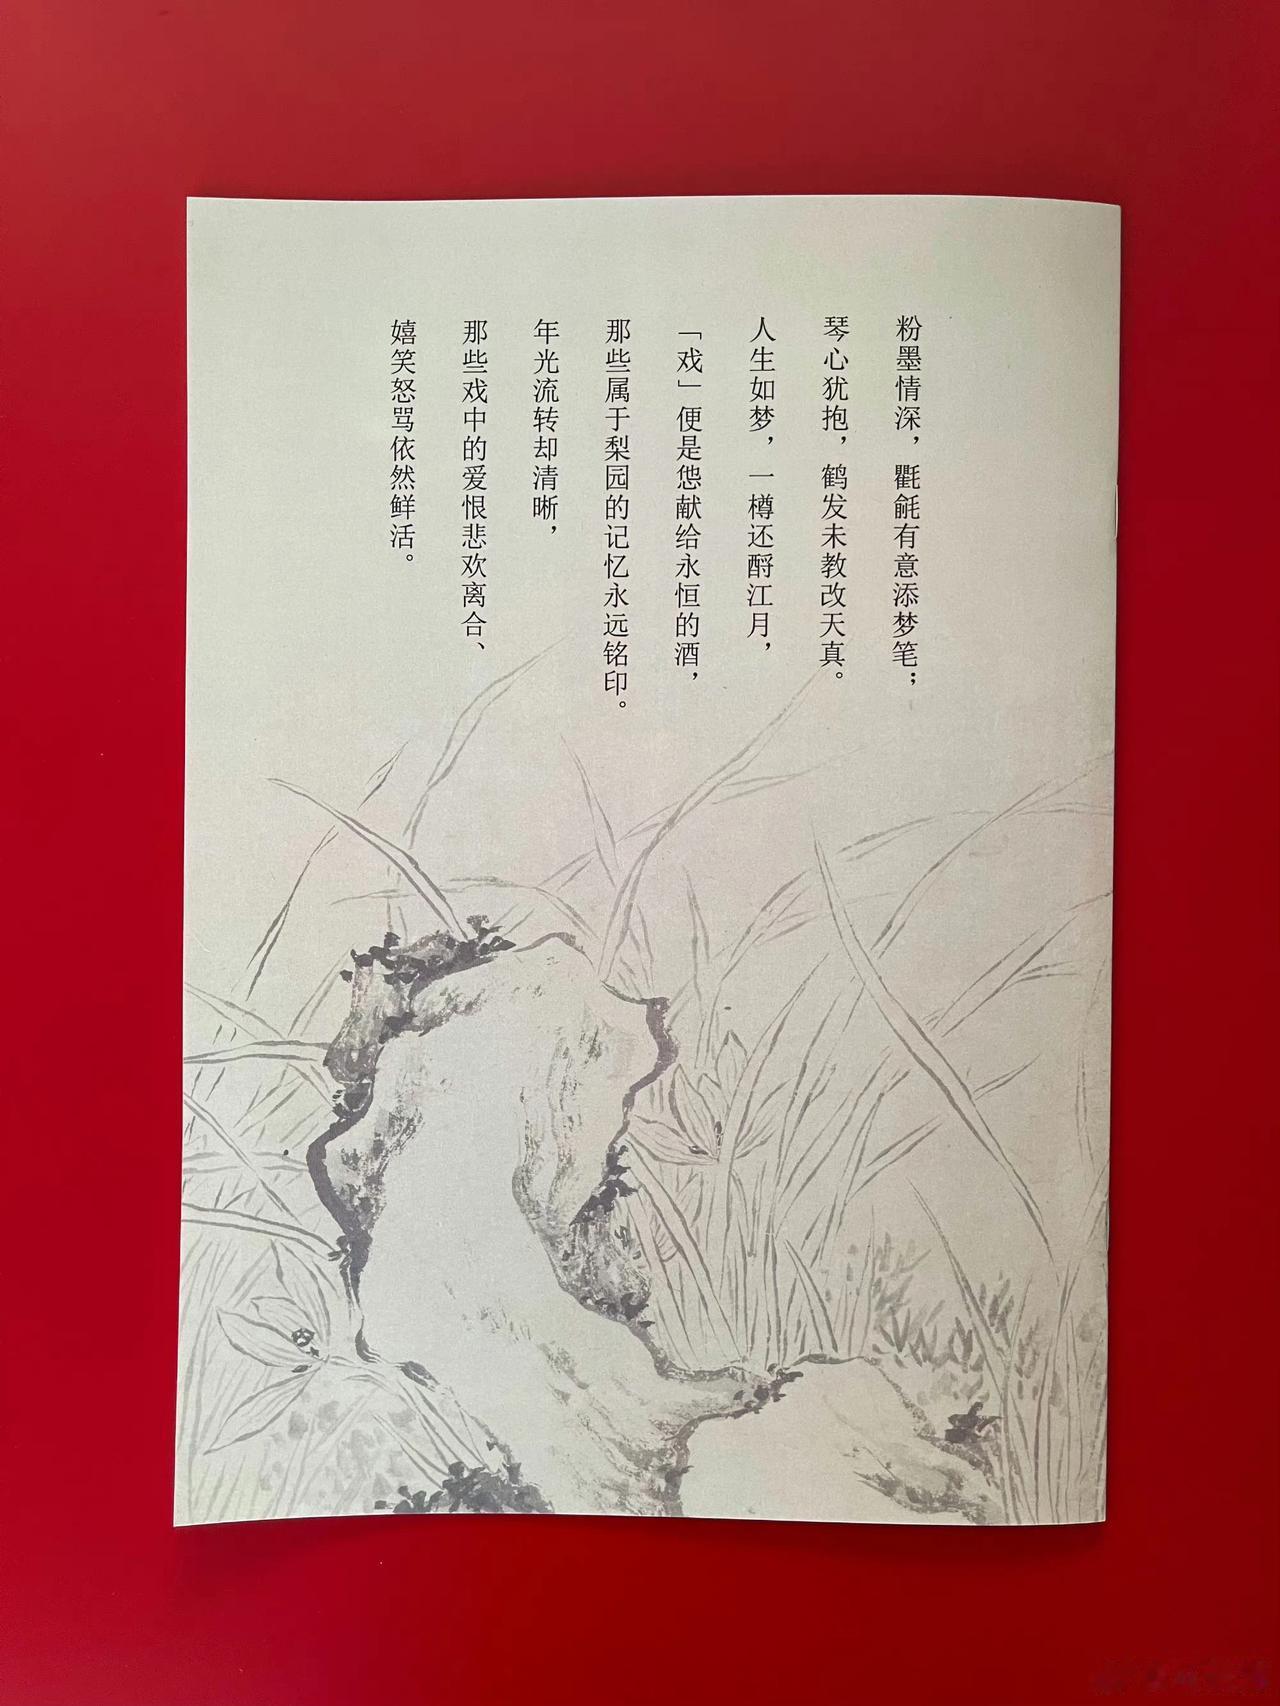 粉墨情深，氍毹有意添梦笔；
琴心犹抱，鹤发未教改天真。
人生如梦，一樽还酹江月，
「戏」便是您献给永恒的酒，
那些属于梨园的记忆永远铭印。
年光流转却清晰，
那些戏中的爱恨悲欢离合、
嬉笑怒骂依然鲜活。